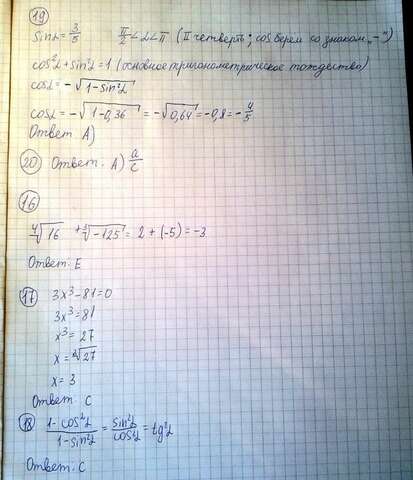 19
sinα = 3/5   π/2 < α < π (II четверть; cos берем со знаком „-")
cos²α + sin²α = 1 (основное тригонометрическое тождество)
cosα = -√(1-sin²α)
cosα = -√(1-0,36) = -√0,64 = -0,8 = -4/5
Ответ A)
20 Ответ: A) a/c
16
⁴√16 + ³√-125 = 2 + (-5) = -3
Ответ: E
17 3x³-81=0
3x³=81
x³=27
x=³√27
x=3
Ответ: C
18 (1-cos²α)/(1-sin²α) = sin²α/cos²α = tg²α
Ответ: C